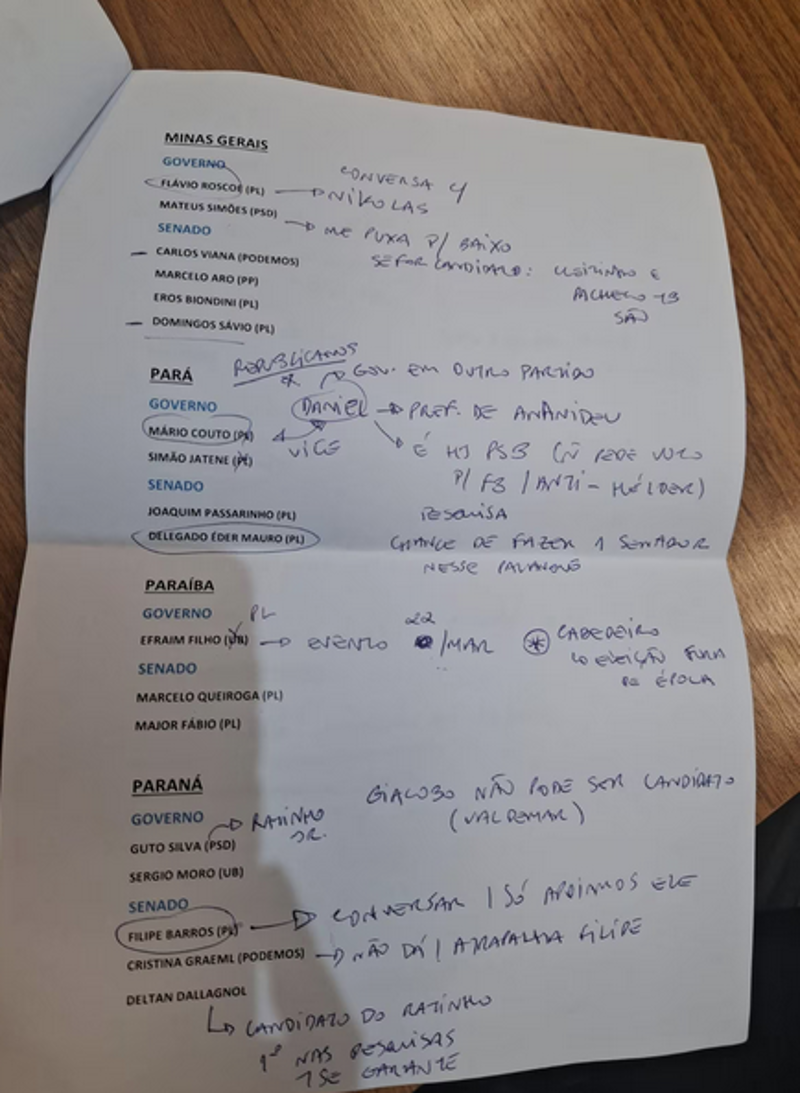 MINAS GERAIS
GOVERNO
FLÁVIO ROSCOE (PL) → CONVERSA C/ NIKOLAS
MATEUS SIMÕES (PSD) → ME PUXA P/ BAIXO
SENADO
SE FOR CANDIDATO: CLEITINHO E PACHECO
CARLOS VIANA (PODEMOS)
MARCELO ARO (PP)
EROS BIONDINI (PL)
DOMINGOS SÁVIO (PL)
PARÁ
REPUBLICANOS
GOV. EM OUTRO PARTIDO
GOVERNO
DANIEL → PREF. DE ANANIDEU
MÁRIO COUTO (PL)
VICE
SIMÃO JATENE
É HJ PSB (Ñ PEDE VOTO
P/ FB / ANTI-HÉLDER)
SENADO
JOAQUIM PASSARINHO (PL)
PESQUISA
DELEGADO ÉDER MAURO (PL)
CHANCE DE FAZER 1 SENADOR
NESSE PALANQUE
PARAÍBA
GOVERNO
PL
EFRAIM FILHO (UB) → EVENTO 22/MAR
* CABEDELO
ELEIÇÃO FORA
DE ÉPOCA
SENADO
MARCELO QUEIROGA (PL)
MAJOR FÁBIO (PL)
PARANÁ
GIACOBO NÃO PODE SER CANDIDATO
(VALDEMAR)
GOVERNO
GUTO SILVA (PSD) → RATINHO JR.
SERGIO MORO (UB)
SENADO
FILIPE BARROS (PL) → CONVERSAR / SÓ APOIAMOS ELE
CRISTINA GRAEML (PODEMOS) → NÃO DÁ! ATRAPALHA FILIPE
DELTAN DALLAGNOL
↳ CANDIDATO DO RATINHO
1º NAS PESQUISAS
SE GARANTE